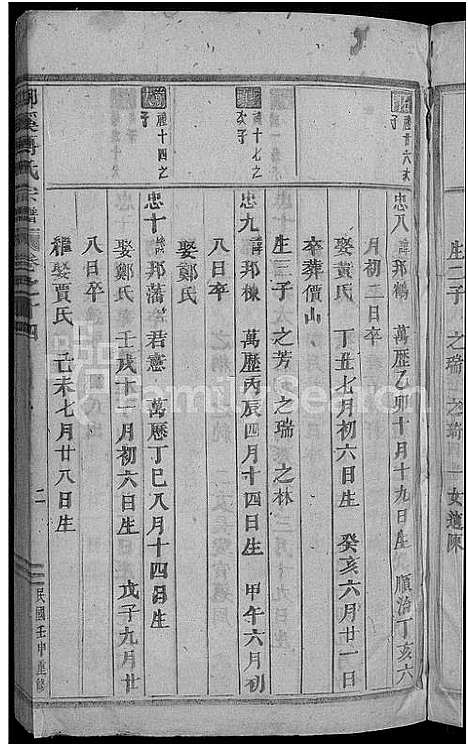 生二子 之瑞 之琦 一女適陳
禮廿六次子
忠八 諱邦鶴 萬歷乙卯十月十九日生 順治丁亥六
月初二日卒
娶黃氏 丁丑七月初六日生 癸亥六月廿一日
卒葬價山
生三子 之芳 之瑞 之林
禮十七之次子
忠九 諱邦棟 萬歷丙辰四月十四日生 甲午六月初
八日卒
娶鄭氏
禮十四之子
忠十 諱邦藩 字君憲 萬歷丁巳八月十四日生
娶鄭氏 壬戌十一月初六日生 戊子九月廿
八日卒
繼娶賈氏 己未七月廿八日生
傅氏宗譜 卷之十四 二 民國壬申重修
FamilySearch